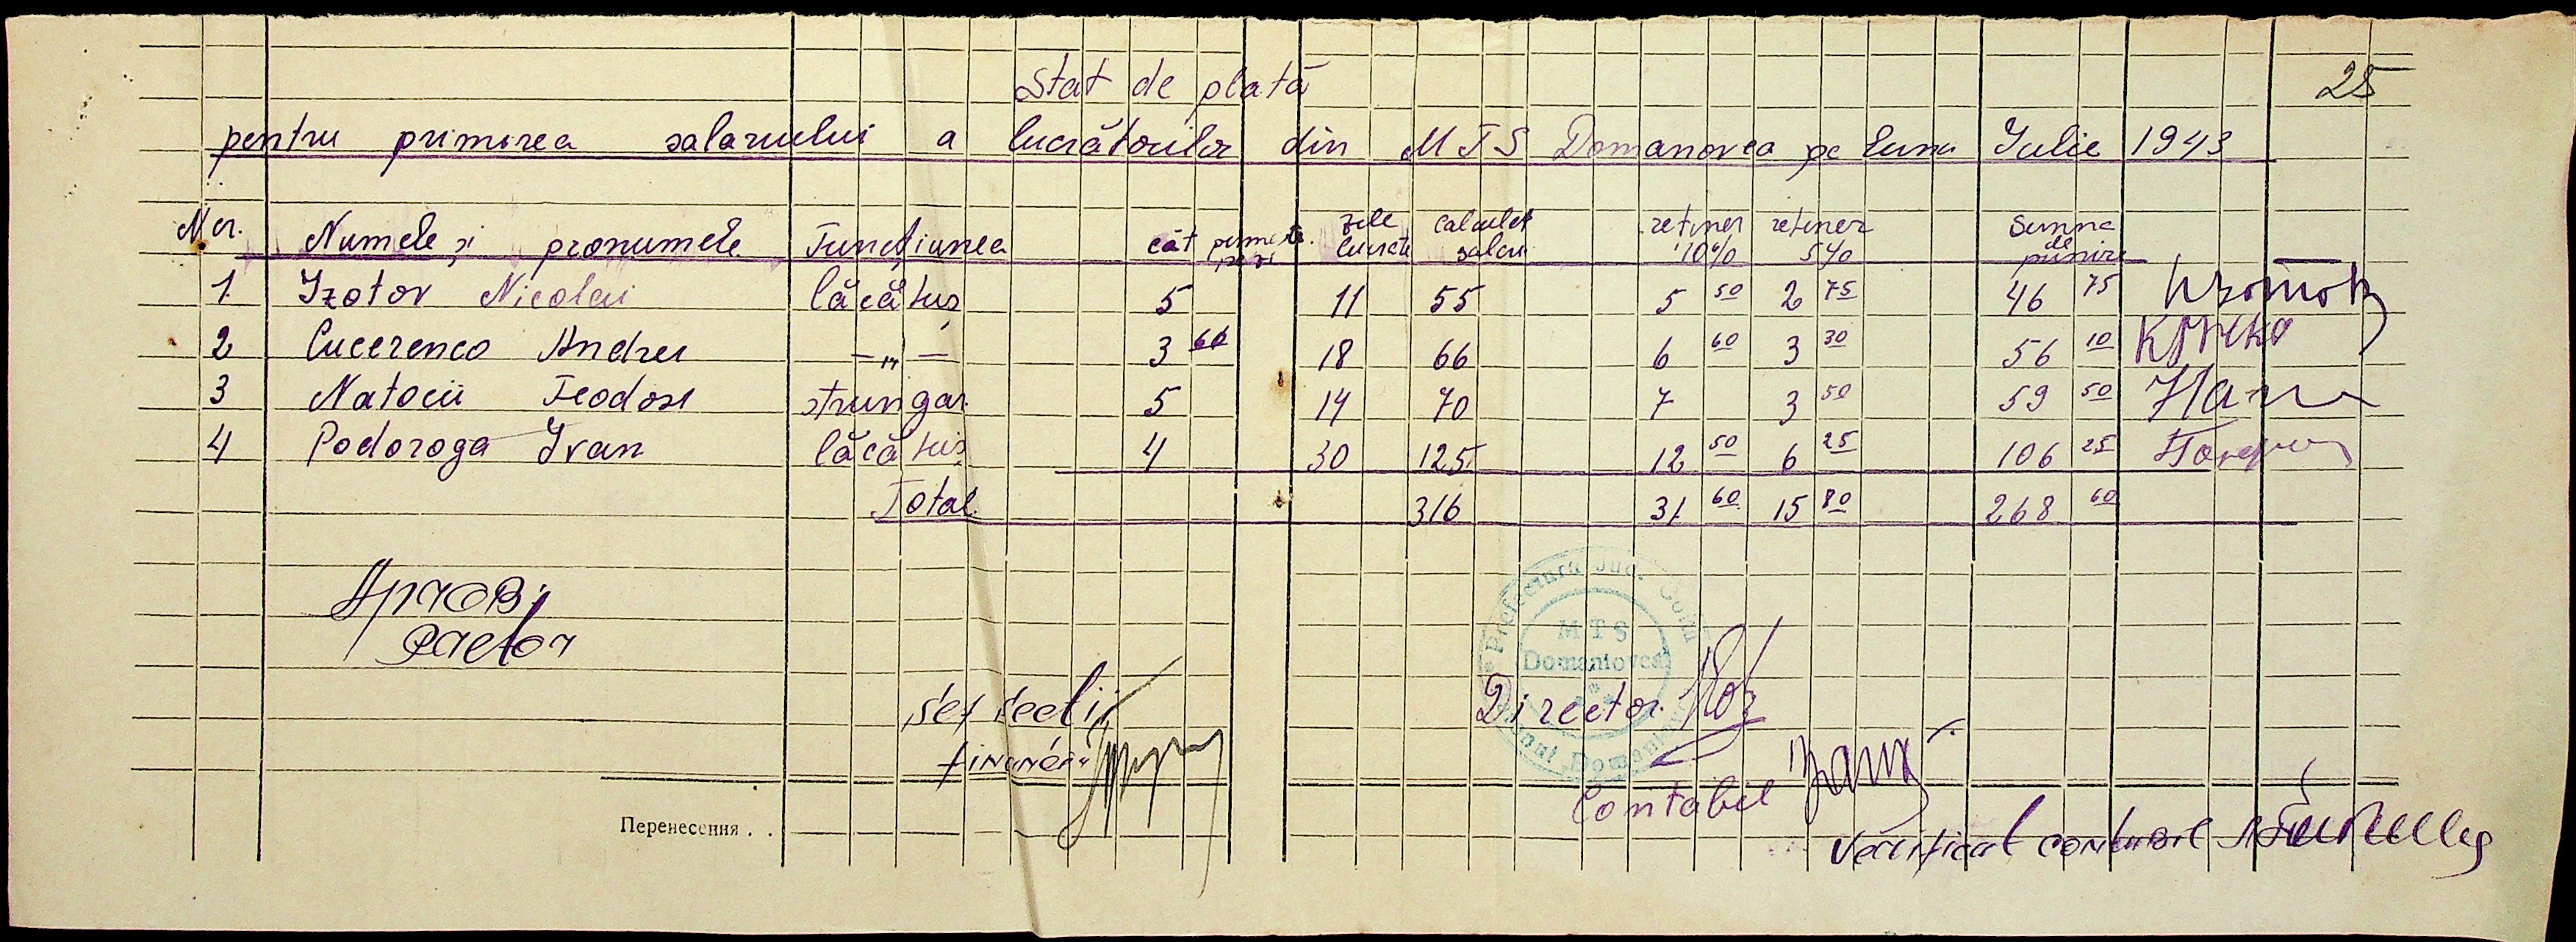 25
Stat de plată
pentru primirea salariului a lucrătorilor din MTS Domanovca pe luna Iulie 1943
Nr. Numele și pronumele Funcțiunea cât primește pe zi zile lucrate calculat salar reținer 10% reținer 5% Summa de primire
1. Izotov Nicolai lăcătuș 5 11 55 5 50 2 75 46 75 Изотов
2 Cucerenco Andrei —„— 3 60 18 66 6 60 3 30 56 10
3 Natocii Feodosi strungar 5 14 70 7 3 50 59 50
4 Podoroga Ivan lăcătuș 4 30 125 12 50 6 25 106 25
Total 316 31 60 15 80 268 60
Aprob;
Pretor
Șef secții
financiar
Prefectura Jud. Golta
MTS
Domaniovca
Director
Contabil
Verificat contabil
Перенесення . .